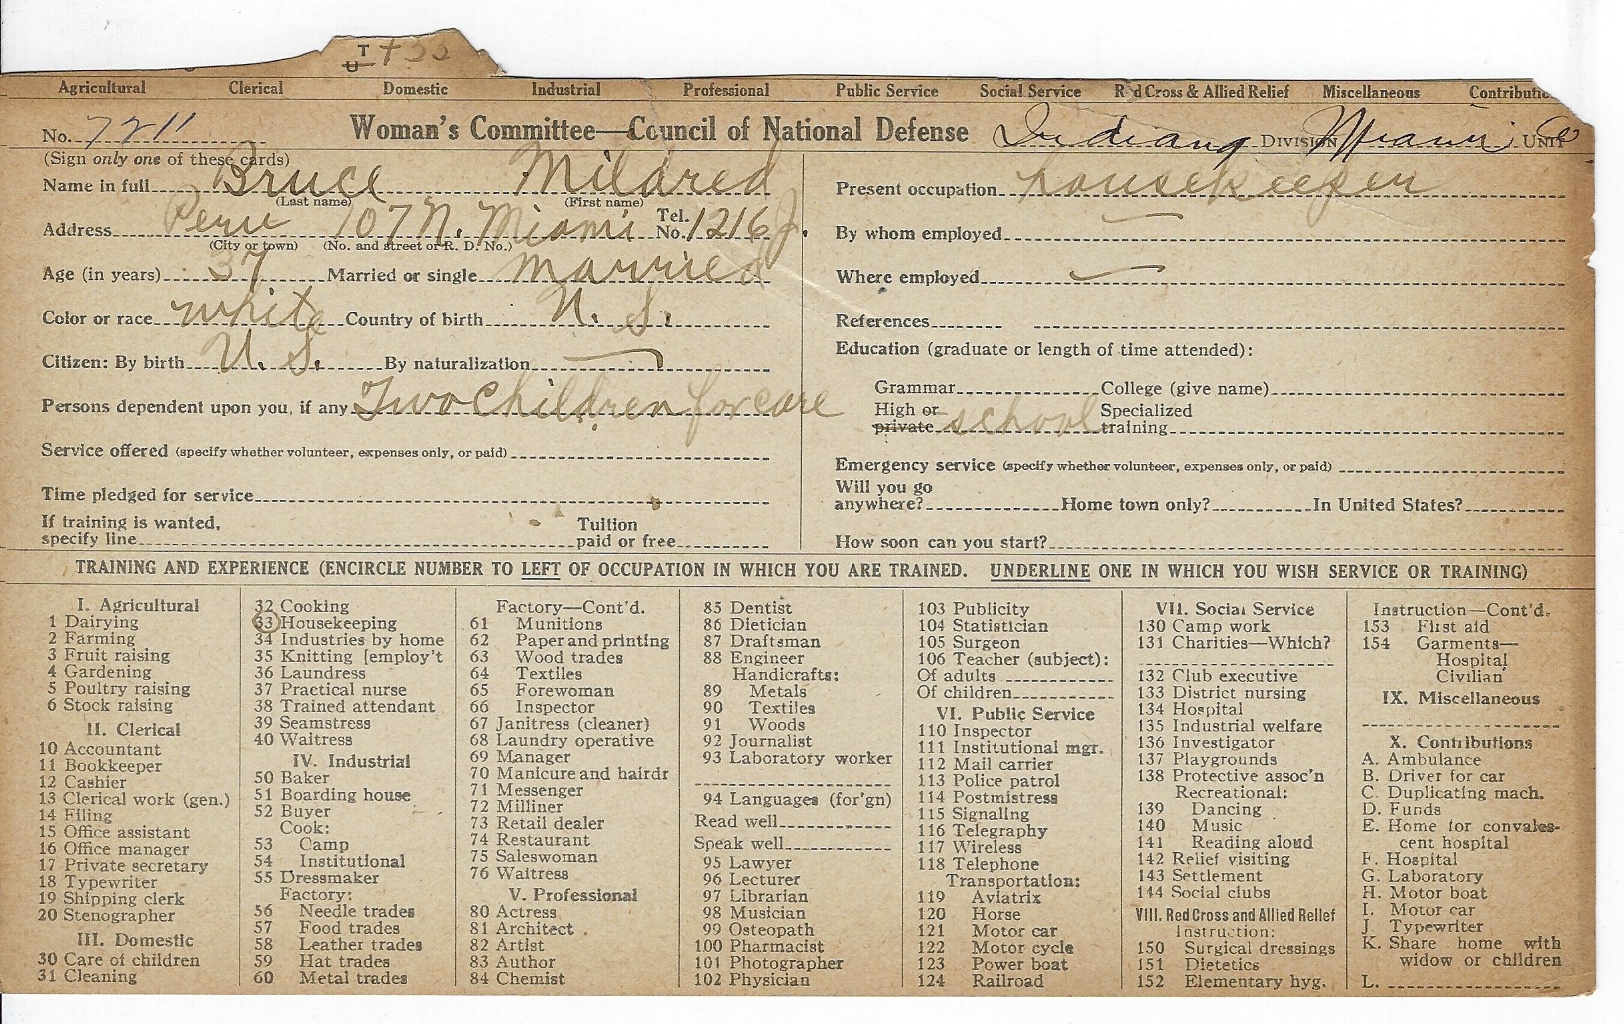 T
U + 55
Agricultural Clerical Domestic Industrial Professional Public Service Social Service R d Cross & Allied Relief Miscellaneous Contributio
No. 7211 Woman's Committee—Council of National Defense Indiana DIVISION Miami Co UNIT
(Sign only one of these cards)
Name in full Bruce Mildred
(Last name) (First name)
Address Peru 107 N. Miami Tel. No. 1216 J.
(City or town) (No. and street or R. D. No.)
Age (in years) 37 Married or single married
Color or race white Country of birth U. S.
Citizen: By birth U. S. By naturalization —
Persons dependent upon you, if any Two children for care
Service offered (specify whether volunteer, expenses only, or paid)
Time pledged for service
If training is wanted, specify line Tuition paid or free
Present occupation housekeeper
By whom employed —
Where employed —
References
Education (graduate or length of time attended):
Grammar College (give name)
High or private school Specialized training
Emergency service (specify whether volunteer, expenses only, or paid)
Will you go anywhere? Home town only? In United States?
How soon can you start?
TRAINING AND EXPERIENCE (ENCIRCLE NUMBER TO LEFT OF OCCUPATION IN WHICH YOU ARE TRAINED. UNDERLINE ONE IN WHICH YOU WISH SERVICE OR TRAINING)
I. Agricultural
1 Dairying
2 Farming
3 Fruit raising
4 Gardening
5 Poultry raising
6 Stock raising
II. Clerical
10 Accountant
11 Bookkeeper
12 Cashier
13 Clerical work (gen.)
14 Filing
15 Office assistant
16 Office manager
17 Private secretary
18 Typewriter
19 Shipping clerk
20 Stenographer
III. Domestic
30 Care of children
31 Cleaning
32 Cooking
33 Housekeeping
34 Industries by home
35 Knitting [employ't
36 Laundress
37 Practical nurse
38 Trained attendant
39 Seamstress
40 Waitress
IV. Industrial
50 Baker
51 Boarding house
52 Buyer
Cook:
53 Camp
54 Institutional
55 Dressmaker
Factory:
56 Needle trades
57 Food trades
58 Leather trades
59 Hat trades
60 Metal trades
Factory—Cont'd.
61 Munitions
62 Paper and printing
63 Wood trades
64 Textiles
65 Forewoman
66 Inspector
67 Janitress (cleaner)
68 Laundry operative
69 Manager
70 Manicure and hairdr
71 Messenger
72 Milliner
73 Retail dealer
74 Restaurant
75 Saleswoman
76 Waitress
V. Professional
80 Actress
81 Architect
82 Artist
83 Author
84 Chemist
85 Dentist
86 Dietician
87 Draftsman
88 Engineer
Handicrafts:
89 Metals
90 Textiles
91 Woods
92 Journalist
93 Laboratory worker
94 Languages (for'gn)
Read well
Speak well
95 Lawyer
96 Lecturer
97 Librarian
98 Musician
99 Osteopath
100 Pharmacist
101 Photographer
102 Physician
103 Publicity
104 Statistician
105 Surgeon
106 Teacher (subject):
Of adults
Of children
VI. Public Service
110 Inspector
111 Institutional mgr.
112 Mail carrier
113 Police patrol
114 Postmistress
115 Signaling
116 Telegraphy
117 Wireless
118 Telephone
Transportation:
119 Aviatrix
120 Horse
121 Motor car
122 Motor cycle
123 Power boat
124 Railroad
VII. Social Service
130 Camp work
131 Charities—Which?
132 Club executive
133 District nursing
134 Hospital
135 Industrial welfare
136 Investigator
137 Playgrounds
138 Protective assoc'n
Recreational:
139 Dancing
140 Music
141 Reading aloud
142 Relief visiting
143 Settlement
144 Social clubs
VIII. Red Cross and Allied Relief
Instruction:
150 Surgical dressings
151 Dietetics
152 Elementary hyg.
Instruction—Cont'd.
153 First aid
154 Garments—
Hospital
Civilian
IX. Miscellaneous
X. Contributions
A. Ambulance
B. Driver for car
C. Duplicating mach.
D. Funds
E. Home for convales-
cent hospital
F. Hospital
G. Laboratory
H. Motor boat
I. Motor car
J. Typewriter
K. Share home with
widow or children
L.